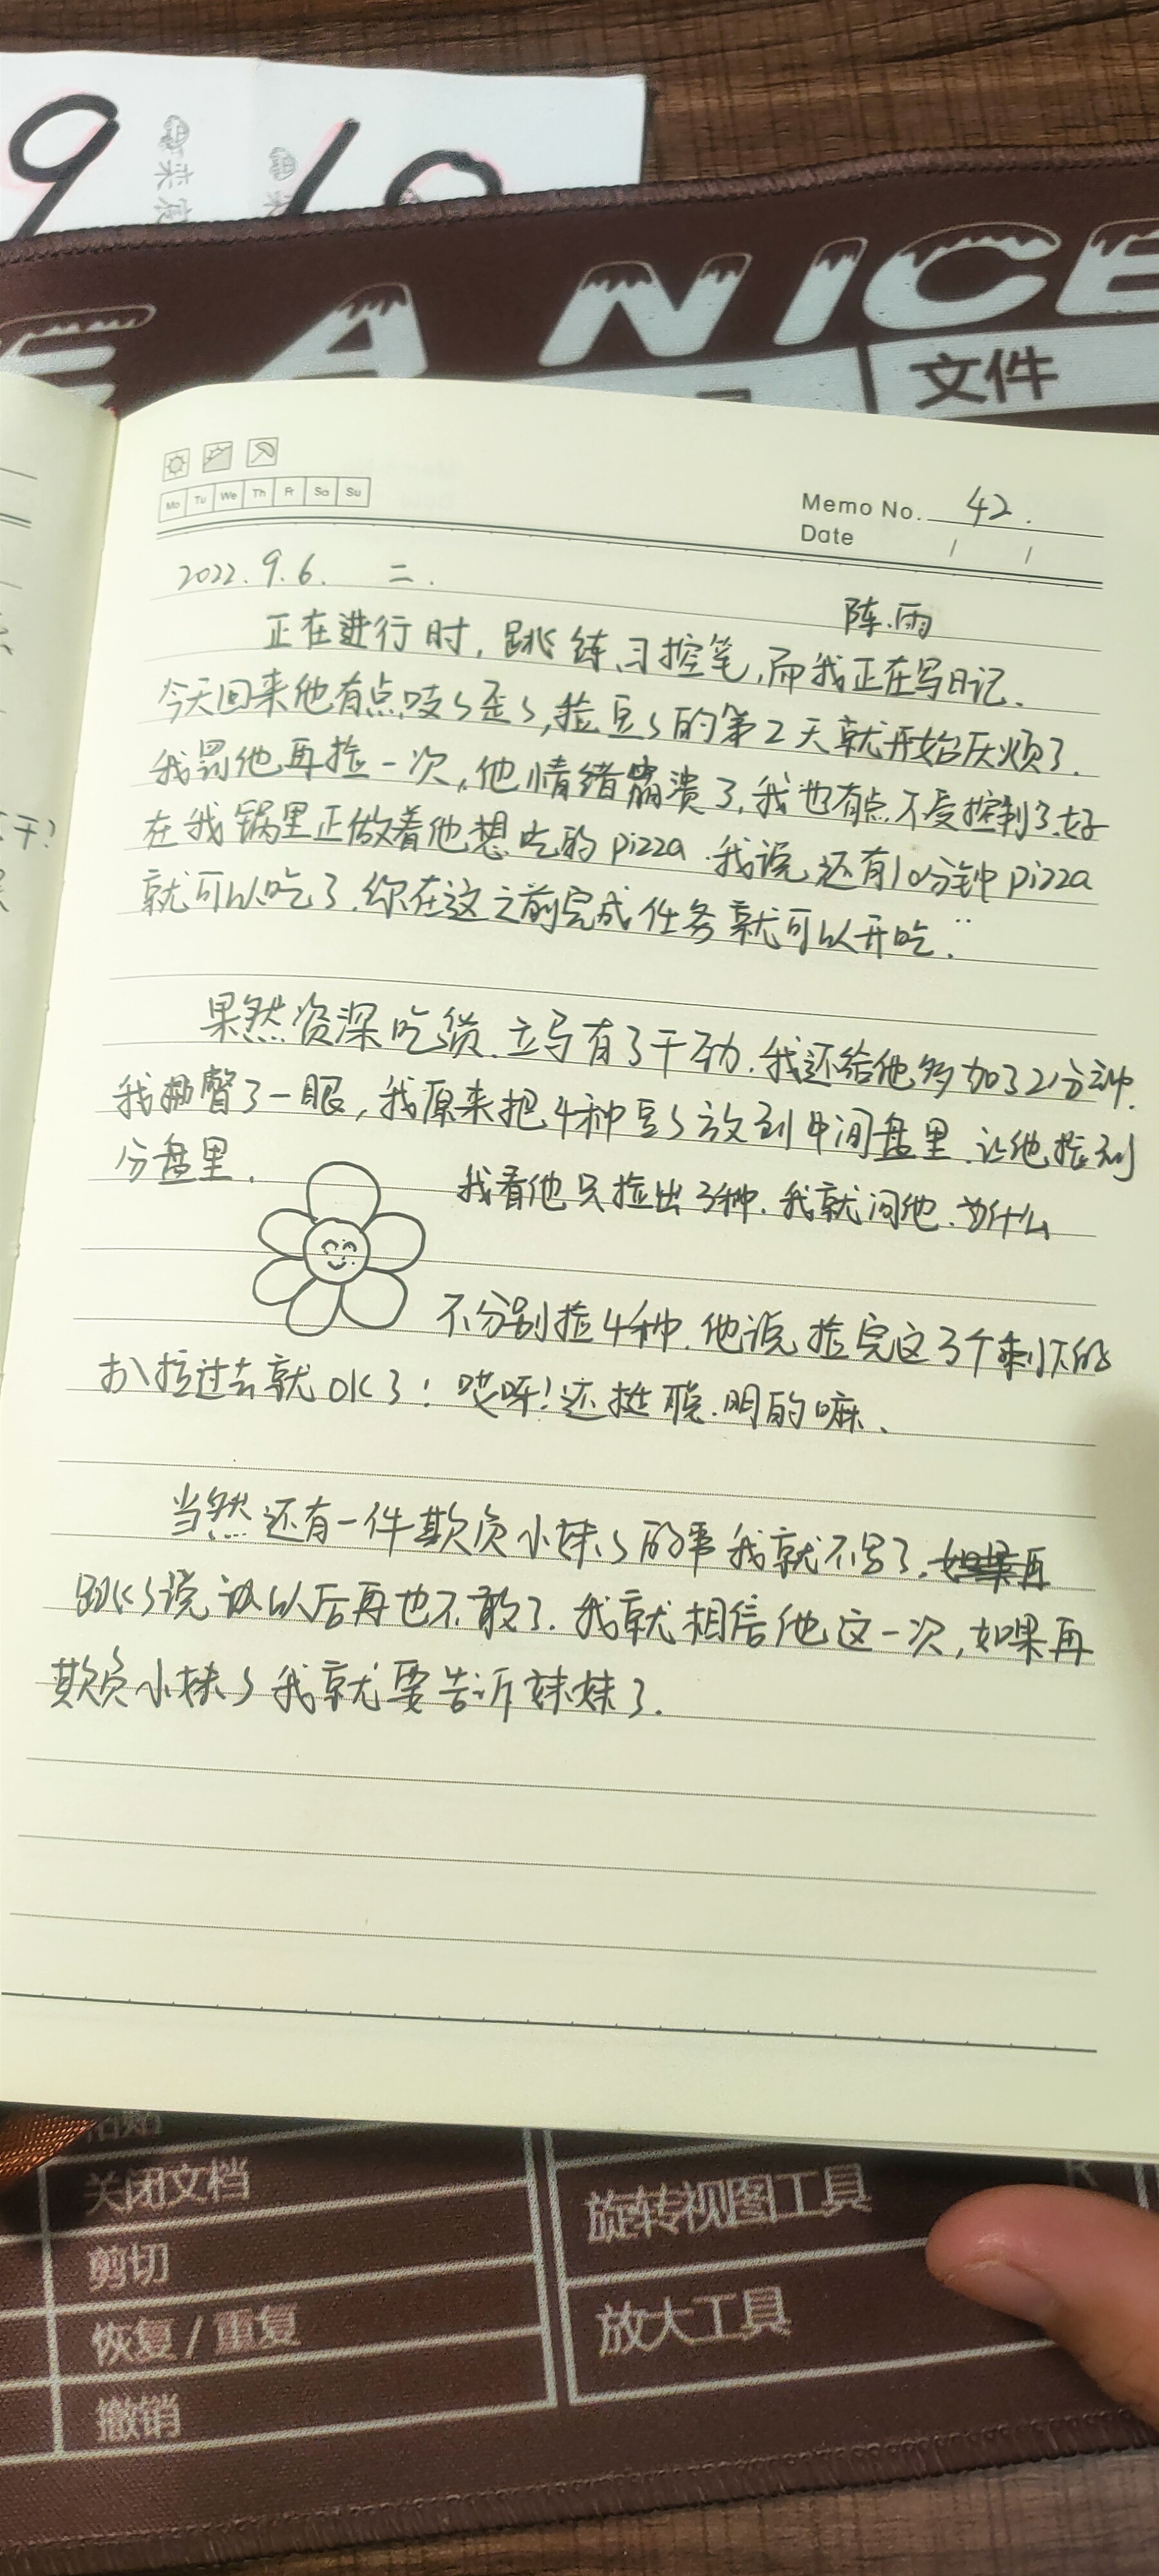 9 10
E A NICE
文件
Mo Tu We Th Fr Sa Su
Memo No. 42.
Date / /
2022.9.6. 二.
阵雨
正在进行时，跳练习控笔，而我正在写日记.
今天回来他有点吱ㄣ歪ㄣ,捡豆ㄣ的第2天就开始厌烦了.
我罚他再捡一次,他情绪崩溃了,我也有点不受控制了.好
在我锅里正做着他想吃的pizza.我说还有10分钟pizza
就可以吃了.你在这之前完成任务就可以开吃.
果然资深吃货.立马有了干劲.我还给他多加了2分钟.
我瞥了一眼,我原来把4种豆ㄣ放到中间盘里.让他捡到
分盘里.
我看他只捡出3种.我就问他.为什么
不分别捡4种.他说捡完这3个剩下的
扒拉过去就OK了!哎呀!还挺聪明的嘛、
当然还有一件欺负小妹ㄣ的事我就不写了.如果再
跳ㄣ说以后再也不敢了.我就相信他这一次,如果再
欺负小妹ㄣ我就要告诉妹妹了.
干?
粘贴
关闭文档
剪切
恢复/重复
撤销
旋转视图工具
R
放大工具